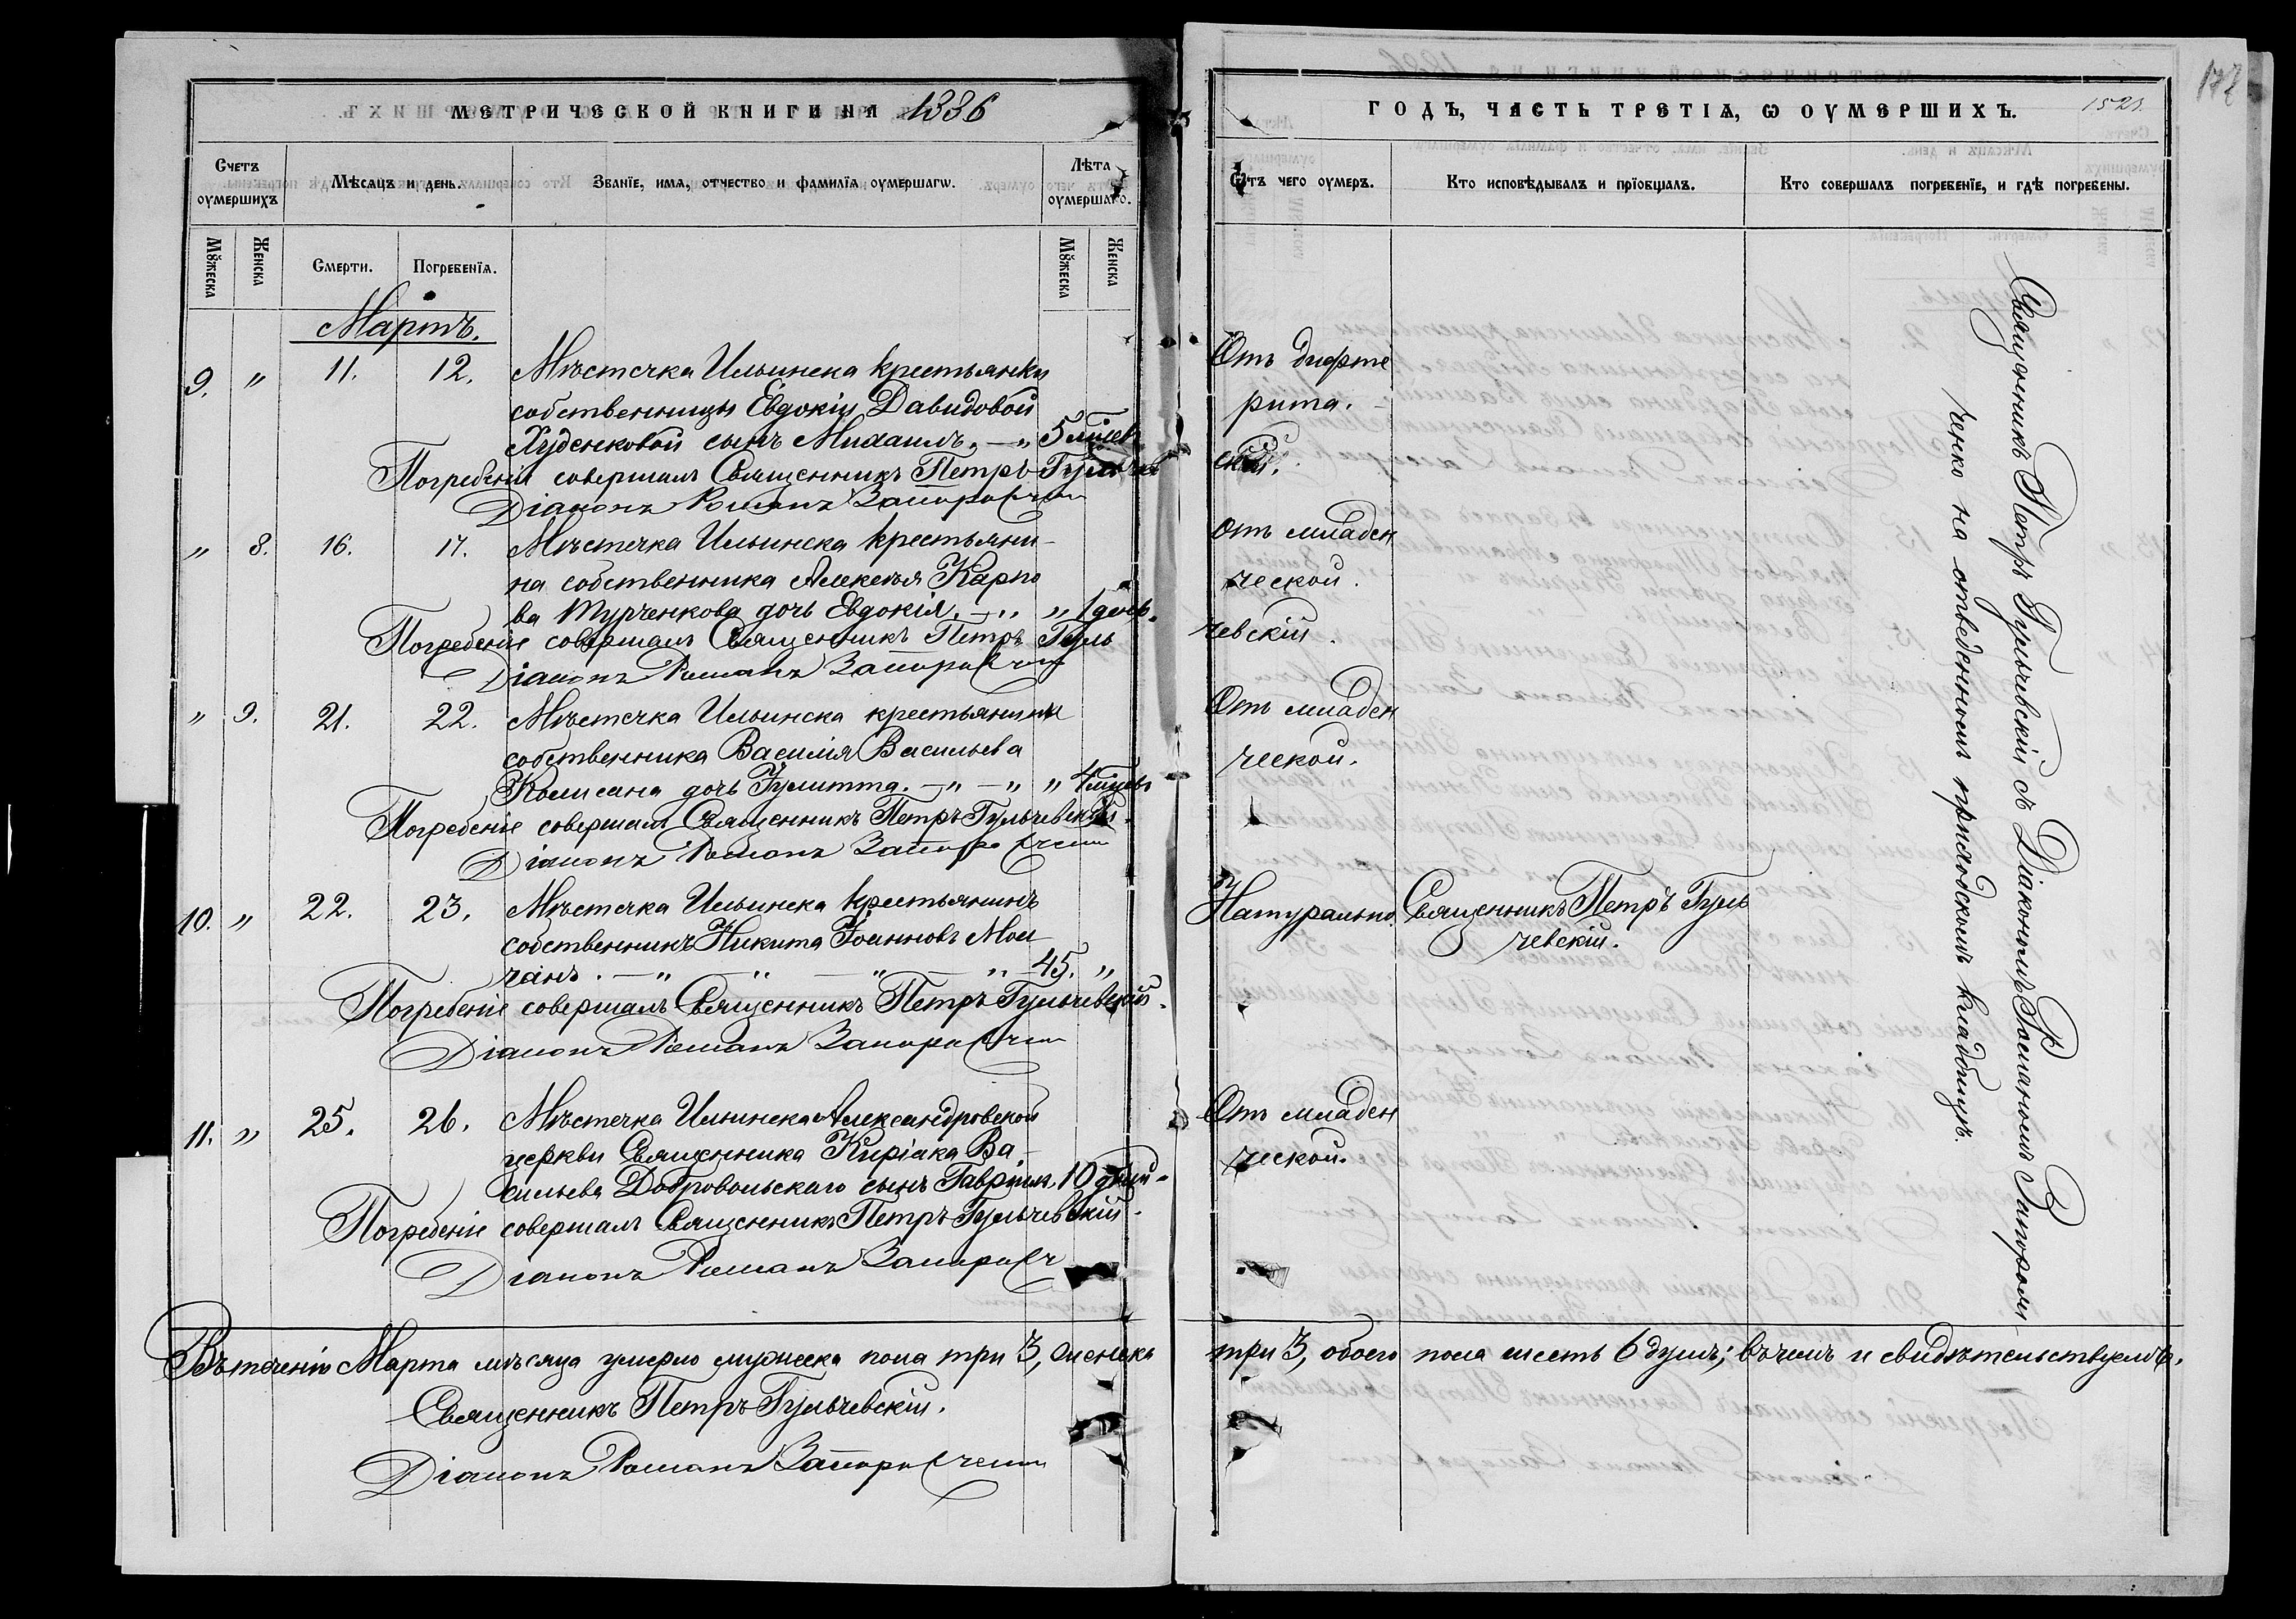 МЕТРИЧЕСКОЙ КНИГИ НА 1886
Счетъ оумершихъ
Мѣсяцъ и день.
Званїе, имя, отчество и фамилїя оумершагѡ.
Лѣта оумершаго.
Мꙋжеска
Женска
Смерти.
Погребенїя.
Мꙋжеска
Женска
Мартъ.
9. " 11. 12. Мѣстечка Ильинска крестьянки
собственницы Евдокіи Давидовой
Худенковой сынъ Михаилъ. — " 5 мѣсяц
Погребеніе совершалъ Священникъ Петръ Гульчев
Діаконъ Романъ Запорожченко
" 8. 16. 17. Мѣстечка Ильинска крестьяни-
на собственника Алексѣя Карпо
ва Турченкова дочь Евдокія. — " " 1 день.
Погребеніе совершалъ Священникъ Петръ Гуль
Діаконъ Романъ Запорожченко
" 9. 21. 22. Мѣстечка Ильинска крестьянина
собственника Василія Васильева
дочь Іулитта. — " — " " 4 мѣсяц
Погребеніе совершалъ Священникъ Петръ Гульчевскій.
Діаконъ Романъ Запорожченко
10. " 22. 23. Мѣстечка Ильинска крестьянинъ
собственникъ Никита Іоанновъ Мол
чанъ. — " — " — " — " 45. "
Погребеніе совершалъ Священникъ Петръ Гульчевскій.
Діаконъ Романъ Запорожченко
11. " 25. 26. Мѣстечка Ильинска Александровской
церкви Священника Киріака Ва-
сильева Добровольскаго сынъ Гавріилъ. 10 дній
Погребеніе совершалъ Священникъ Петръ Гульчевскій
Діаконъ Романъ Запорожч
Въ теченіи Марта мѣсяца умерло мужеска пола три 3, женска
Священникъ Петръ Гульчевскій.
Діаконъ Романъ Запорожченко
ГОДЪ, ЧАСТЬ ТРЕТІѦ, Ѡ ОУМЕРШИХЪ.
Ѿтъ чего оумеръ.
Кто исповѣдывалъ и прїобщалъ.
Кто совершалъ погребенїе, и гдѣ погребены.
Отъ дифте
рита.
скій.
Отъ младен
ческой.
чевскій.
Отъ младен
ческой.
Натурально.
Священникъ Петръ Гуль
чевскій.
Отъ младен
ческой.
Священникъ Петръ Гульчевскій съ Діакономъ Романомъ Запорож-
ченко на отведенномъ приходскомъ кладбищѣ.
три 3, обоего пола шесть 6 душъ; въ чемъ и свидѣтельствуемъ.